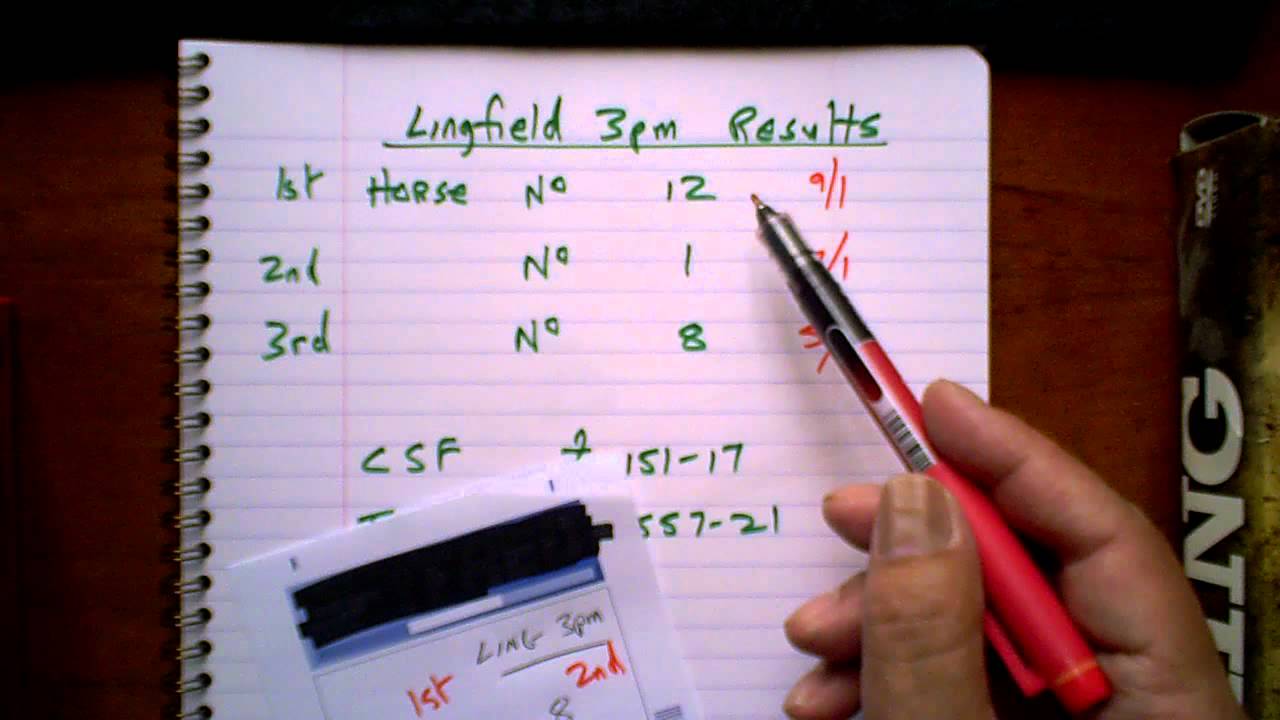 Lingfield 3pm Results
1st HORSE Nº 12 9/1
2nd Nº 1 /1
3rd Nº 8
CSF £ 151-17
557-21
LING 3pm
1st 2nd
8
DVD
ING